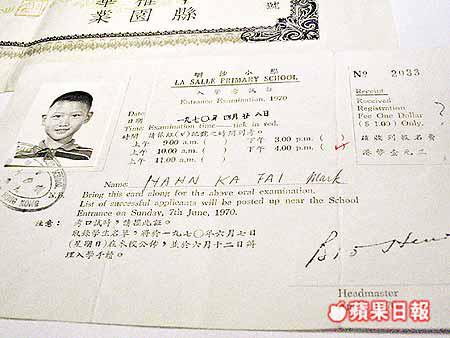 號
縣園業
喇沙小學
LA SALLE PRIMARY SCHOOL
入學考試証
Entrance Examination, 1970
日期 一九七〇年四月廿八日
Date
Time: Examination time — tick in red.
上午 9.00 a.m. ( ) 下午 3.00 p.m. ( )
上午 10.00 a.m. ( ) 下午 4.00 p.m. ( ✓
上午 11.00 a.m. ( )
Name: HAHN KA TAI Mark
N.B. Bring this card along for the above oral examination.
List of successful applicants will be posted up near the School
Entrance on Sunday, 7th June, 1970.
注意： 考口試時，請攜此証。
取錄學生名單，將於一九七〇年六月七日
(星期日)在本校公佈，並於六月十二日辦
理入學手續。
Nº 2033
Receipt
Received
Registration
Fee One Dollar
($ 1.00) Only.
茲收到報名費
港幣壹元正
Headmaster
蘋果日報